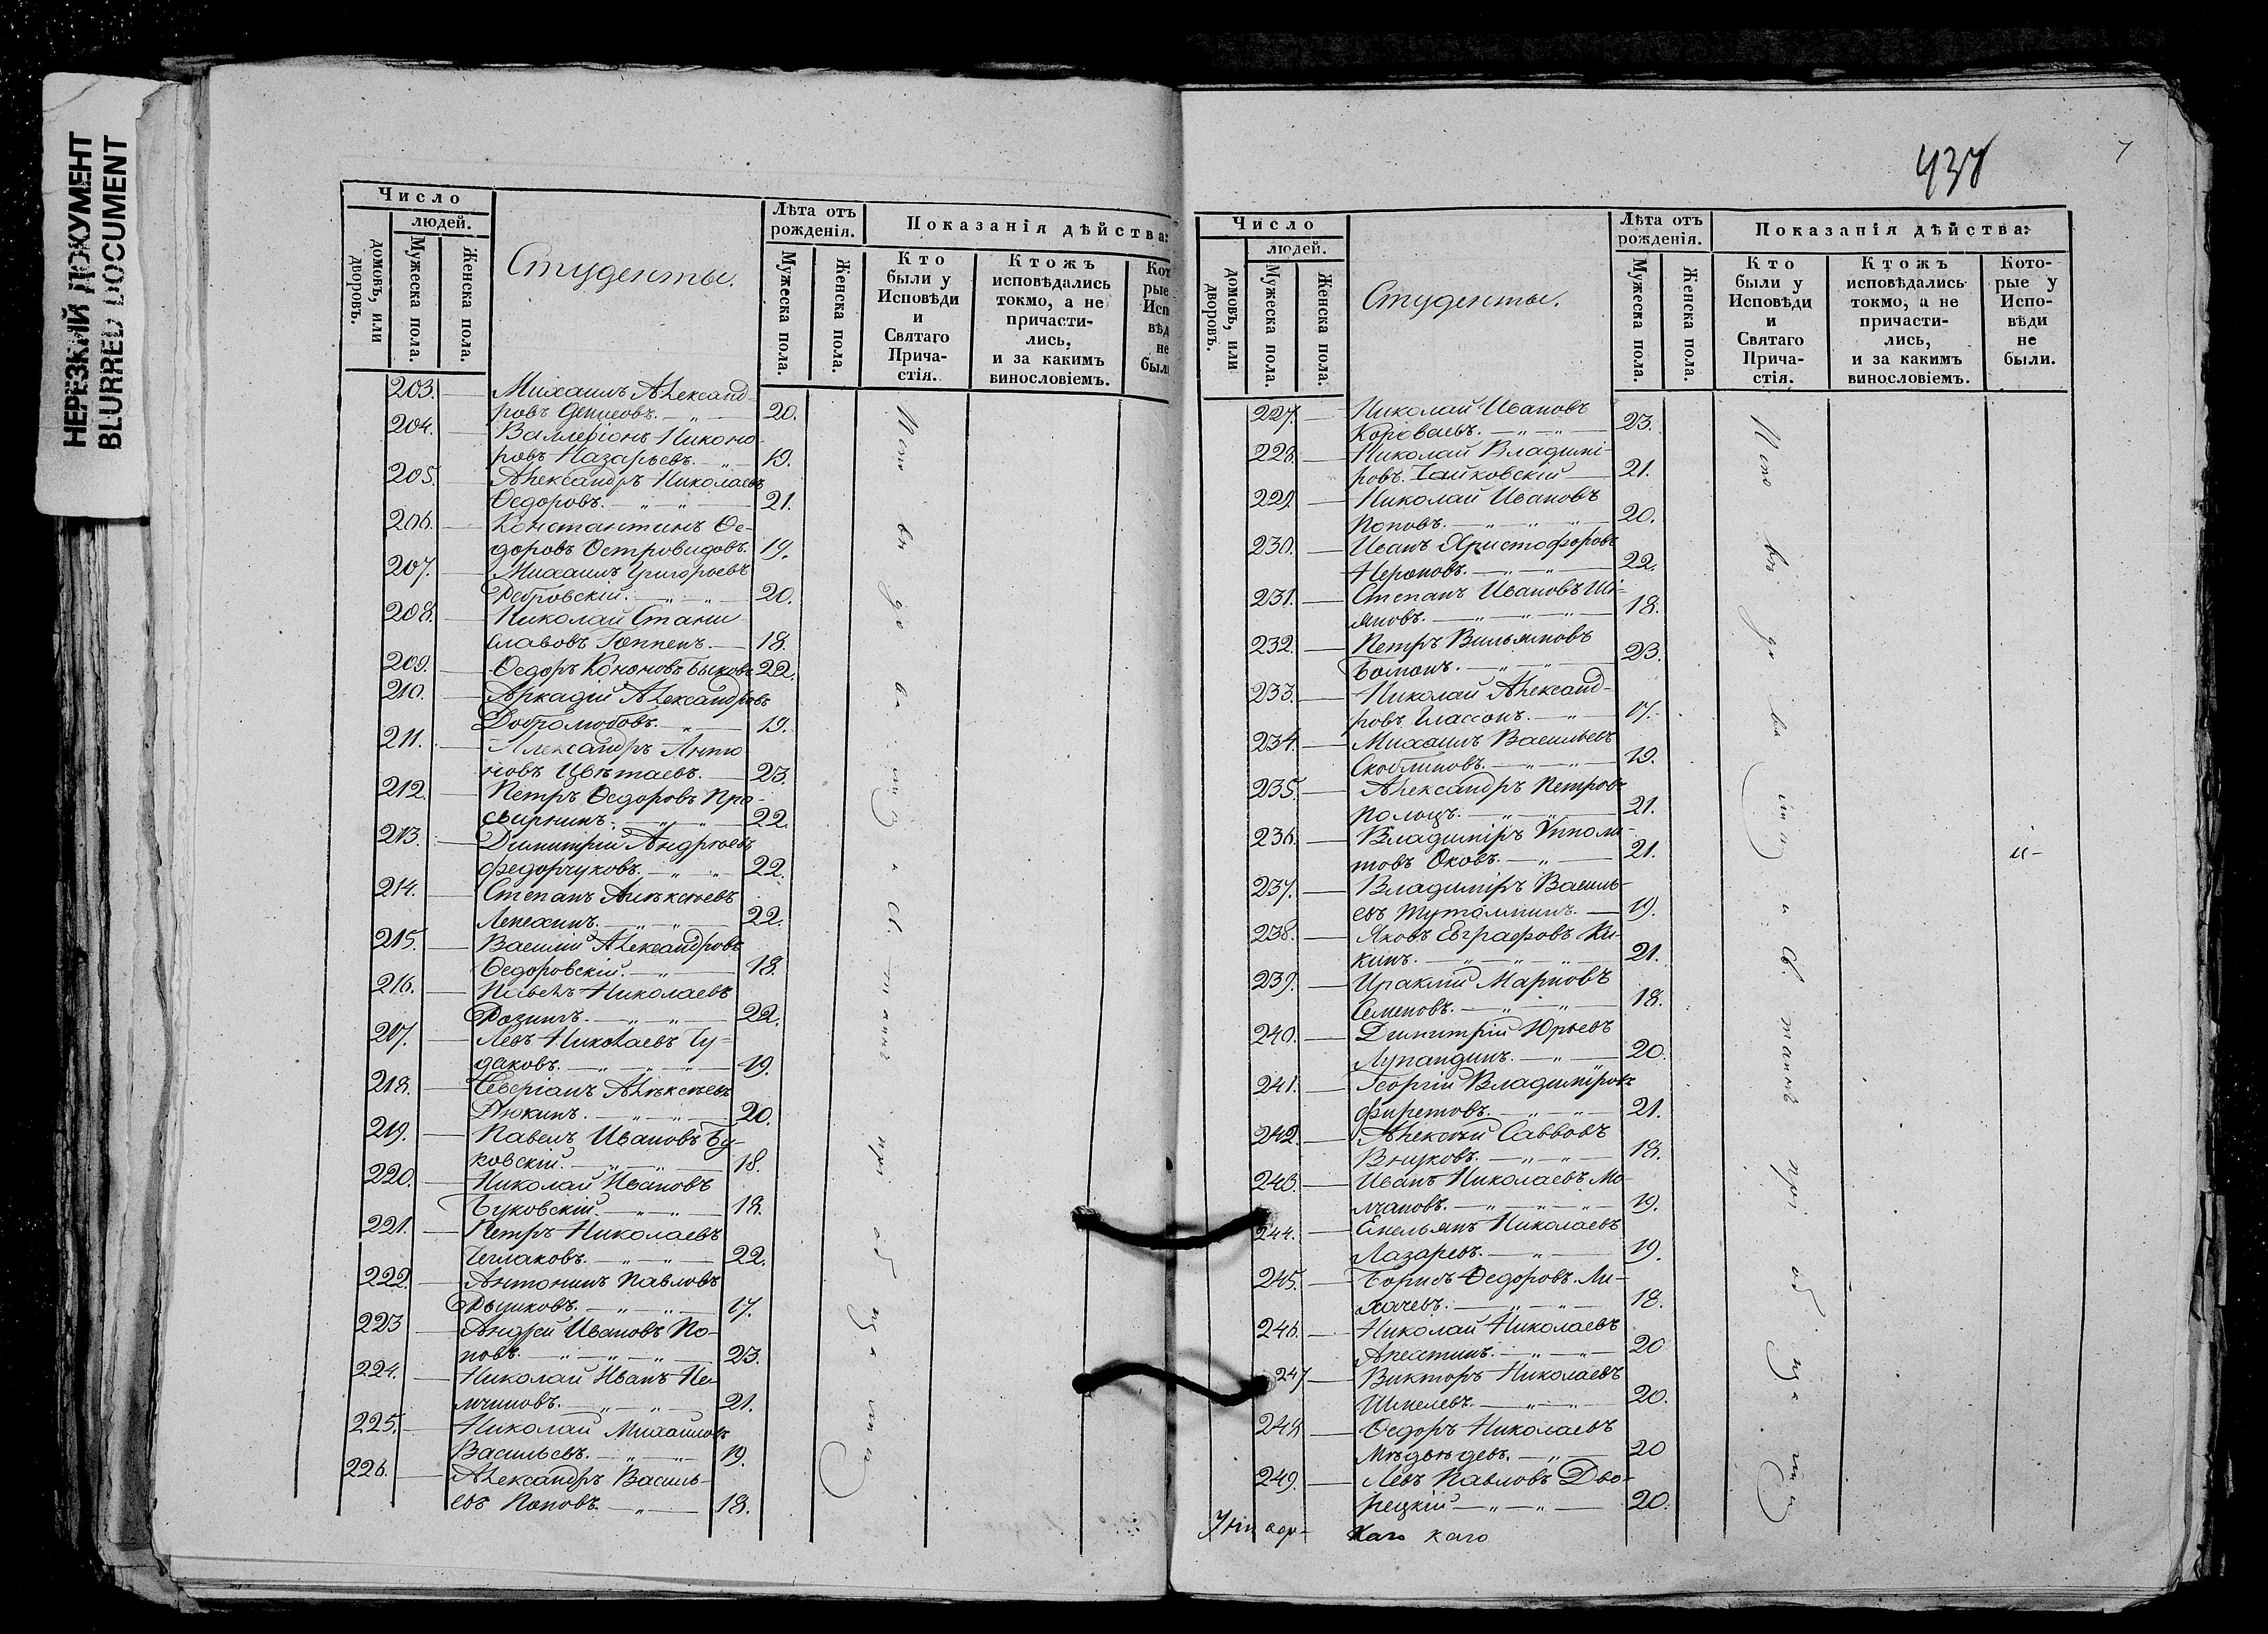 НЕРЕЗКИЙ ДОКУМЕНТ
BLURRED DOCUMENT
Число
людей.
домовъ, или дворовъ.
Мужеска пола.
Женска пола.
Студенты.
Лѣта отъ рожденія.
Мужеска пола.
Женска пола.
Показанія дѣйства:
Кто были у Исповѣди и Святаго Прича-стія.
Ктожъ исповѣдались токмо, а не причасти-лись, и за какимъ винословіемъ.
203. Михаилъ Александ-
ровъ Денисовъ. 20.
204. Валлеріонъ Никоно-
ровъ Назарьевъ. 19.
205. Александръ Николаевъ
Ѳедоровъ. 21.
206. Константинъ Ѳе-
доровъ Островидовъ. 19.
207. Михаилъ Григорьевъ
Ребровскій. 20.
208. Николай Стани
славовъ Гоппенъ. 18.
209. Ѳедоръ Кононовъ Быковъ 22.
210. Аркадій Александровъ
Добролюбовъ. 19.
211. Александръ Анто
новъ Цвѣтаевъ. 23.
212. Петръ Ѳедоровъ Про-
свирнинъ. 22.
213. Димитрій Андреевъ
Федорчуковъ. 22.
214. Степанъ Алѣксѣевъ
Лепехинъ. 22.
215. Василій Александровъ
Ѳедоровскій. 18.
216. Павелъ Николаевъ
Розингъ. 22.
217. Левъ Николаевъ Бу-
даковъ. 19.
218. Северіанъ Алѣксѣевъ
Люкинъ. 20.
219. Павелъ Ивановъ Бу-
ковскій. 18.
220. Николай Ивановъ
Буковскій. 18.
221. Петръ Николаевъ
Теглаковъ. 22.
222. Антонинъ Павловъ
Рышковъ. 17.
223 Андрей Ивановъ По-
повъ. 23.
224. Николай Иванъ Пе-
мчиновъ. 21.
225. Николай Михаиловъ
Васильевъ. 19.
226. Александръ Василь-
евъ Поповъ. 18.
437
7
Число
людей.
домовъ, или дворовъ.
Мужеска пола.
Женска пола.
Студенты.
Лѣта отъ рожденія.
Мужеска пола.
Женска пола.
Показанія дѣйства:
Кто были у Исповѣди и Святаго Прича-стія.
Ктожъ исповѣдались токмо, а не причасти-лись, и за какимъ винословіемъ.
Кото-рые у Испо-вѣди не были.
227. Николай Ивановъ
Короваевъ. 23.
228. Николай Владимі-
ровъ Чайковскій 21.
229. Николай Ивановъ
Поповъ. 20.
230. Иванъ Христофоровъ
Нероновъ. 22.
231. Степанъ Ивановъ Ші-
яновъ. 18.
232. Петръ Вильямовъ
Ботонъ. 23.
233. Николай Александ-
ровъ Глассонъ. 17.
234. Михаилъ Васильевъ
Скоблиновъ. 19.
235. Александръ Петровъ
Полоцъ. 21.
236. Владиміръ Иппопи-
товъ Оковъ. 21.
237. Владиміръ Василь-
евъ Тутолминъ. 19.
238. Яковъ Евграфовъ Ки-
кинъ. 21.
239. Ираклій Марковъ
Семеновъ. 18.
240. Димитрій Юрьевъ
Лупандинъ. 20.
241. Георгій Владиміровъ
Фиретовъ. 21.
242. Алексѣй Саввовъ
Внуковъ. 18.
243. Иванъ Николаевъ Мо-
лчановъ. 19.
244. Емельянъ Николаевъ
Лазаревъ. 19.
245. Борисъ Ѳедоровъ Ли-
хачевъ. 18.
246. Николай Николаевъ
Апехтинъ. 20
247 Викторъ Николаевъ
Шмелевъ. 20.
248 Ѳедоръ Николаевъ
Мѣдвѣдевъ. 20
249. Левъ Павловъ Дво-
рецкій 20.